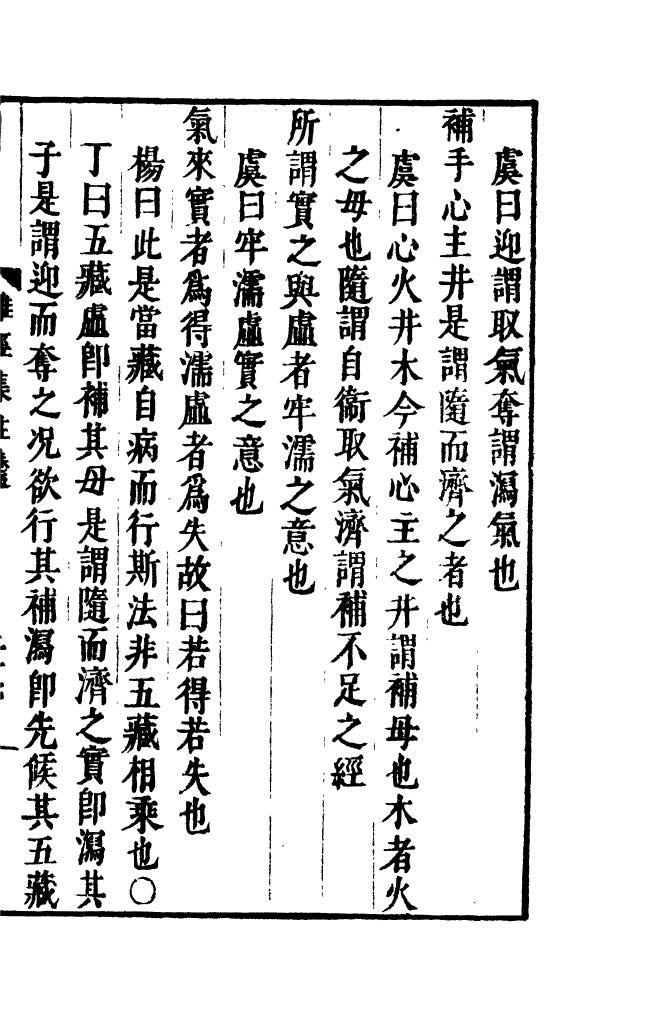 虞曰迎謂取氣奪謂瀉氣也
補手心主井是謂隨而濟之者也
虞曰心火井木今補心主之井謂補母也木者火
之母也隨謂自衞取氣濟謂補不足之經
所謂實之與虛者牢濡之意也
虞曰牢濡虛實之意也
氣來實者爲得濡虛者爲失故曰若得若失也
楊曰此是當藏自病而行斯法非五藏相乘也〇
丁曰五藏虛卽補其母是謂隨而濟之實卽瀉其
子是謂迎而奪之况欲行其補瀉卽先候其五藏